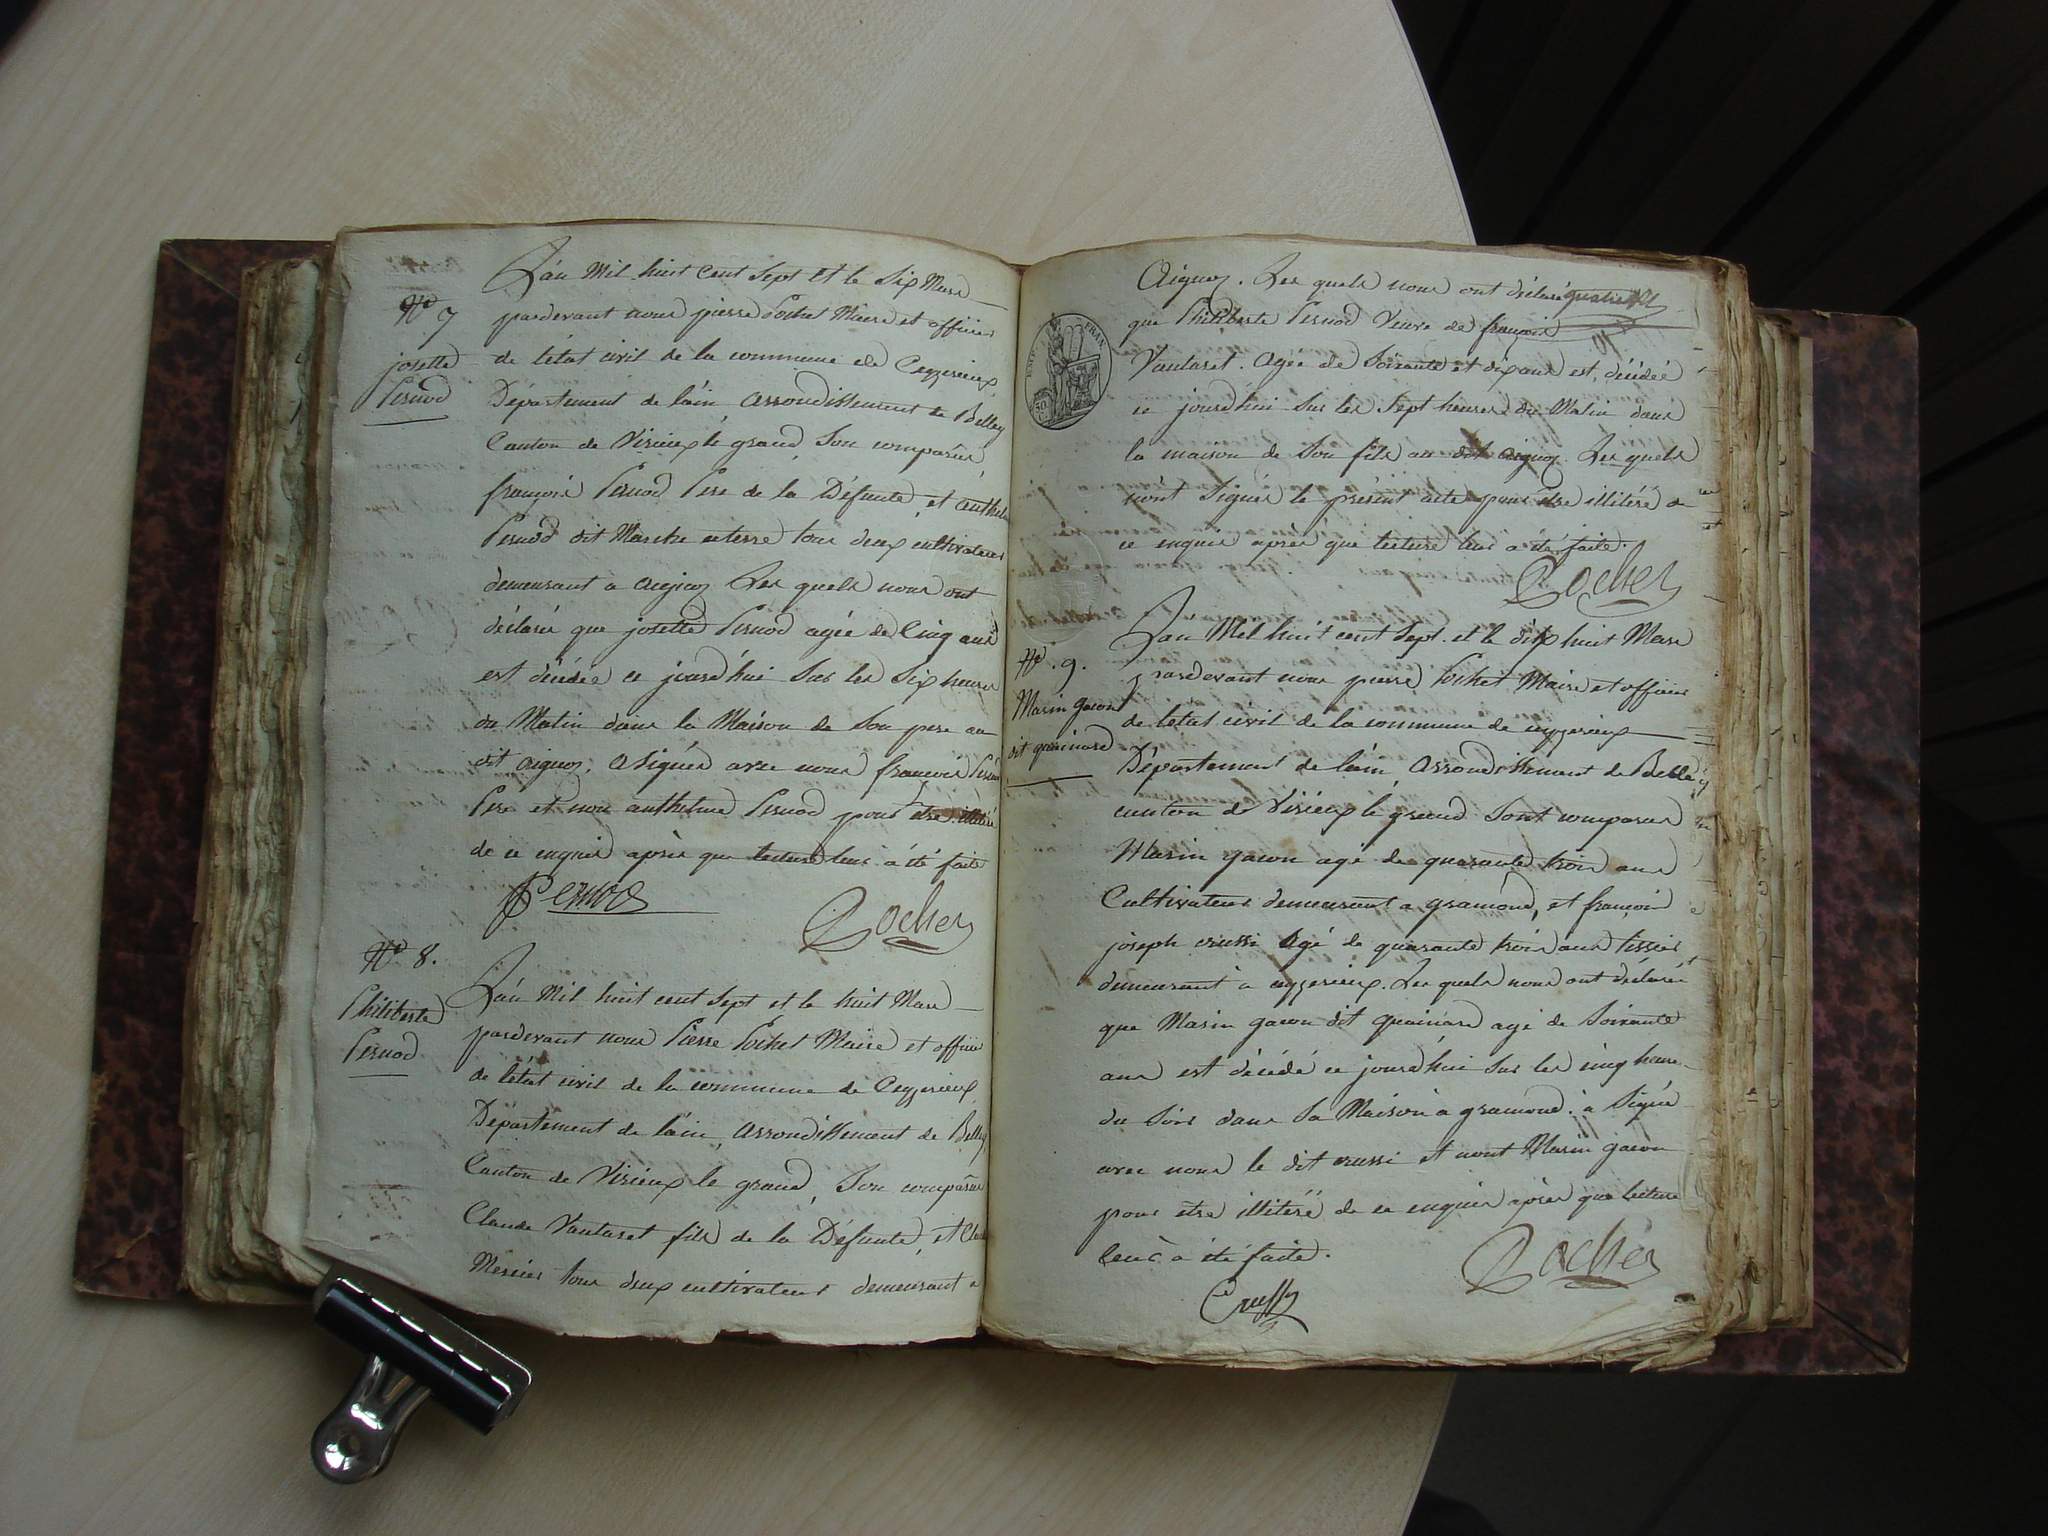 N° 7
josette
Pernod
L'an Mil huit Cent Sept et le Six Mars
pardevant nous pierre Pochet Maire et officier
de l'état civil de la commune de Ceyzerieux
Département de l'ain, arrondissement de Belley
Canton de Virieux le grand, Son comparûs
françois Pernod Pere de la Défunte, et anthelme
Pernod dit tous deux cultivateurs
demeurant a aignoz Les quels nous ont
déclaré que josette Pernod agée de Cinq ans
est décédée ce jourd'hui Sur les Six heures
du Matin dans la Maison de Son pere au
dit aignoz, a Signée avec nous francois Pernod
Pere et non anthelme Pernod pour etre illitéré
de ce enquis après que lecture leur à été faite
Pernod
Pochet
N° 8.
Philiberte
Pernod
L'an Mil huit cent Sept et le huit Mars
pardevant nous Pierre Pochet Maire et officier
de l'état civil de la commune de Ceyzerieux
Département de l'ain, arrondissement de Belley
Canton de Virieux le grand, Son comparûs
Claude Vautaret fils de la Défunte, et
Mercier tous deux cultivateurs demeurant a
Aignoz. Les quels nous ont déclaré
que Philiberte Pernod Veuve de françois
Vautaret. agée de Soixante et dix ans est décédée
ce jourd'hui Sur les Sept heures du Matin dans
la maison de Son fils au dit aignoz. Les quels
n'ont Signés le présent acte pour etre illitéré de
ce enquis après que lecture leur a été faite.
Pochet
N° 9.
Marin gacon
dit
L'an Mil huit cent Sept. et le dix huit Mars
pardevant nous pierre Pochet Maire et officier
de letat civil de la commune de ceyzerieux
Département de l'ain, arrondissement de Belley
canton de Virieux le grand Sont comparus
Marin gacon agé de quarante trois ans
Cultivateur demeurant a gramond, et françois
joseph crussi agé de quarante trois ans tissier
demeurant à ceyzerieux. Les quels nous ont déclaré
que Marin gacon dit agé de Soixante
ans est décédé ce jourd'hui Sur les cinq heure
du Soir dans Sa Maison à gramond. à Signé
avec nous le dit crussi et nont Marin gacon
pour etre illitéré de ce enquis après que lecture
leur à été faite.
Crussy
Pochet